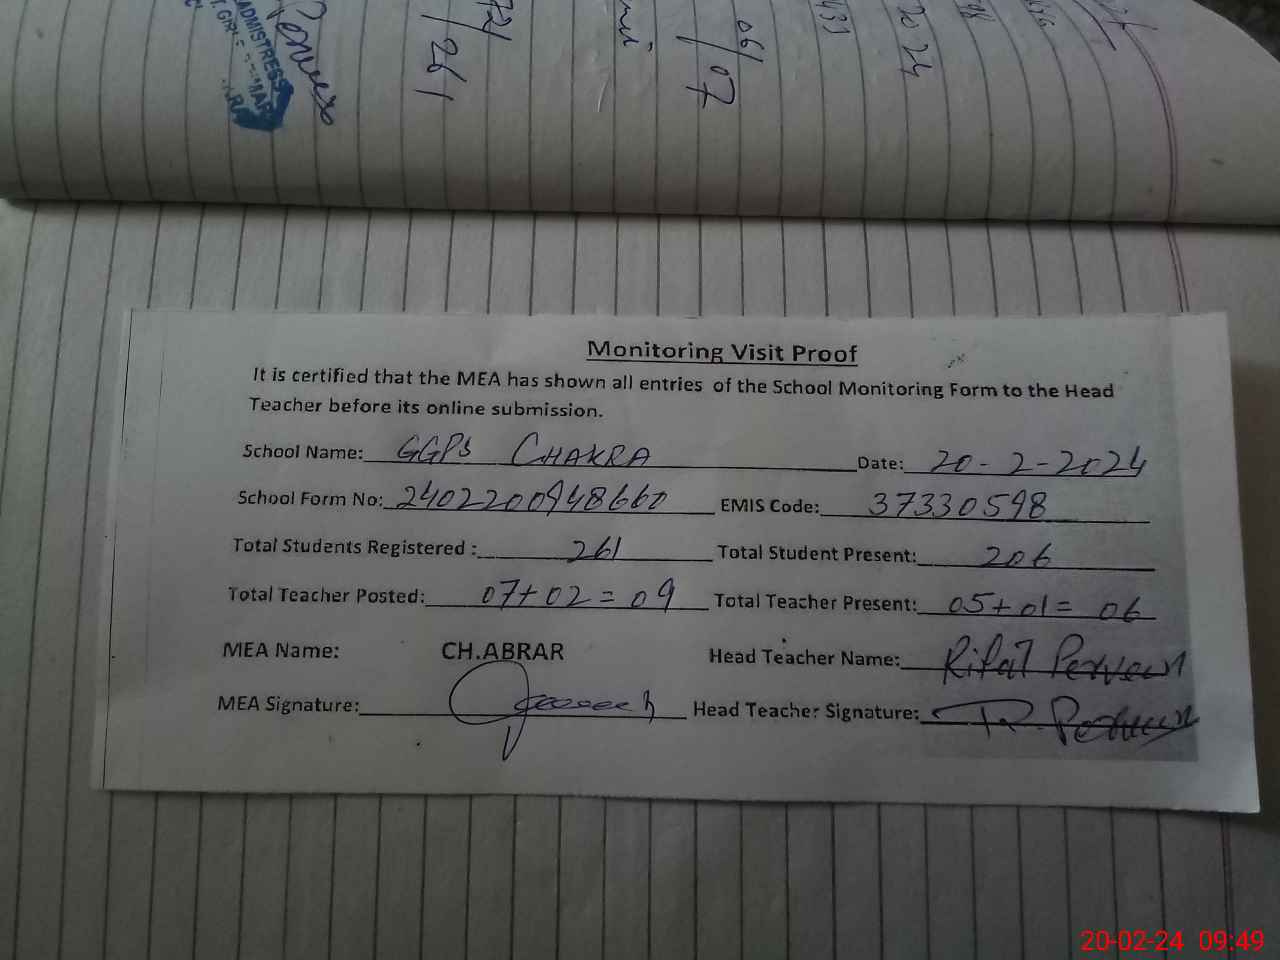 ADMISTRESS
72/
261
06/
07
433
2024
Monitoring Visit Proof
It is certified that the MEA has shown all entries of the School Monitoring Form to the Head
Teacher before its online submission.
School Name: GGPS CHAKRA Date: 20-2-2024
School Form No: 2402200948660 EMIS Code: 37330598
Total Students Registered : 261 Total Student Present: 206
Total Teacher Posted: 07+02=09 Total Teacher Present: 05+01= 06
MEA Name: CH.ABRAR Head Teacher Name: Rifat Perveen
MEA Signature: Head Teacher Signature: R. Perveen
20-02-24 09:49